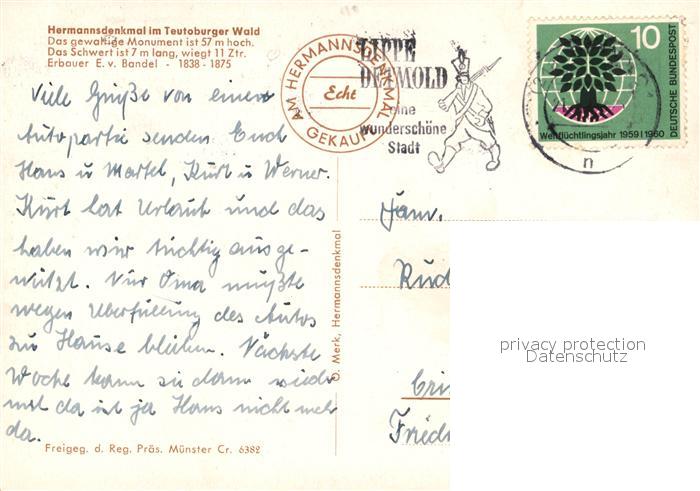 Hermannsdenkmal im Teutoburger Wald
Das gewaltige Monument ist 57 m hoch.
Das Schwert ist 7 m lang, wiegt 11 Ztr.
Erbauer E. v. Bandel - 1838 - 1875
AM HERMANNSDENKMAL
Echt
GEKAUFT
LIPPE
DETMOLD
eine
wunderschöne
Stadt
10
DEUTSCHE BUNDESPOST
Weltflüchtlingsjahr 1959 | 1960
n
Viele Grüße von einer
Autopartie senden Euch
Hans u Martel, Kurt u Werner.
Kurt hat Urlaub und das
haben wir tüchtig ausge-
nützt. Nur Oma mußte
wegen Überfüllung des Autos
zu Hause bleiben. Nächste
Woche kann sie dann wieder
mit da ist ja Hans nicht mehr
da.
Fam.
Rud
Fried
O. Merk, Hermannsdenkmal
Freigeg. d. Reg. Präs. Münster Cr. 6382
privacy protection
Datenschutz